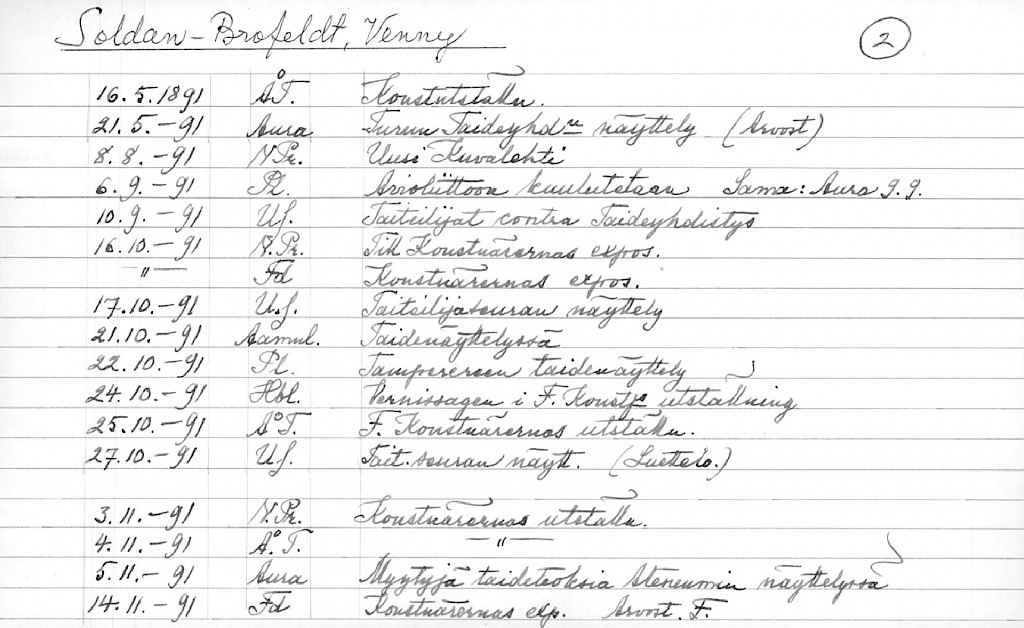 Soldan-Brofeldt, Venny 2
16.5.1891 Å.T. Konstutställn.
21.5.-91 Aura Turun Taideyhd:n näyttely (Arvost)
8.8.-91 N.Pr. Uusi Kuvalehti
6.9.-91 Pl. Arvoliittoon kuulutetaan Sama: Aura 9.9.
10.9.-91 U.S. Taiteilijat contra Taideyhdistys
16.10.-91 N.Pr. Till Konstnärernas expos.
—"— Fd Konstnärernas expos.
17.10.-91 U.S. Taiteilijaseuran näyttely
21.10.-91 Aamul. Taidenäyttelyssä
22.10.-91 Pl. Tampereen taidenäyttely
24.10.-91 Hbl. Vernissagen i F. utställning
25.10.-91 Å.T. F. Konstnärernas utställn.
27.10.-91 U.S. Tait.seuran näytt. (Luettelo.)
3.11.-91 N.Pr. Konstnärernas utställn.
4.11.-91 Å.T. —"—
5.11.-91 Aura Myytyjä taideteoksia Ateneumin näyttelyssä
14.11.-91 Fd Konstnärernas exp. Arvost. F.